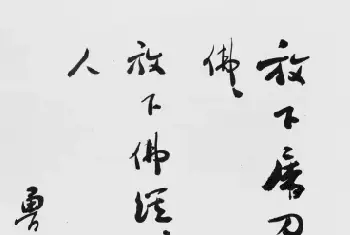 放下屠刀
佛、
放下佛經、
人